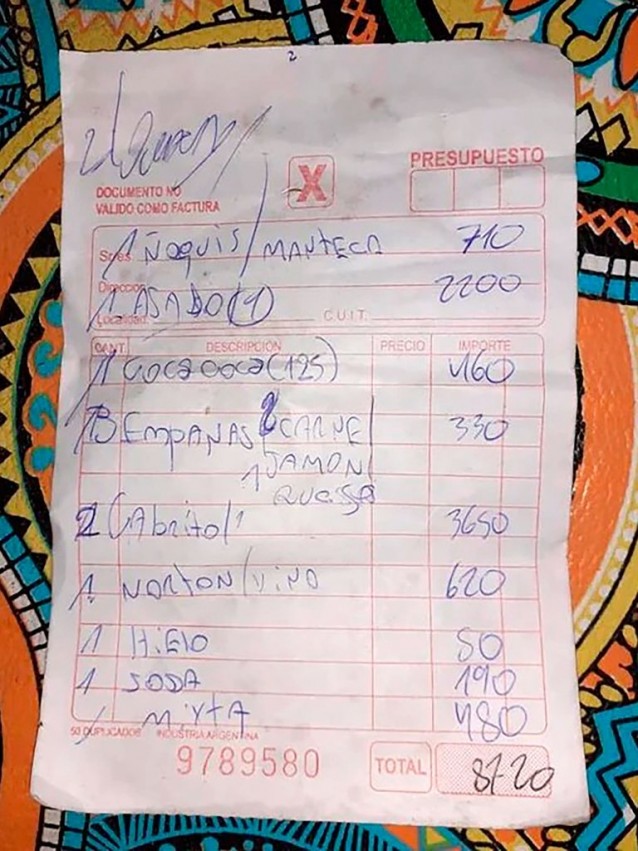 2
DOCUMENTO NO
VALIDO COMO FACTURA
X
PRESUPUESTO
Sres.
1 ÑOQUIS / MANTECA 710
Dirección
1 ASADO (1) 2200
Localidad
C.U.I.T.
CANT. DESCRIPCION PRECIO IMPORTE
1 COCA COCA (125) 460
3 EMPANAS 2 CARNE 330
1 JAMON
QUESO
2 CAbrito / 1 3650
1 NORTON / viNO 620
1 HiElO 80
1 SODA 190
1 MiXTA 480
50 DUPLICADOS INDUSTRIA ARGENTINA
9789580
TOTAL 8720